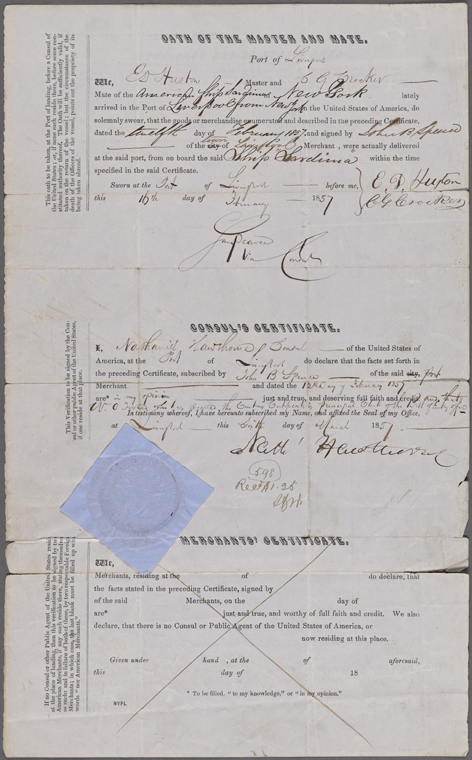 OATH OF THE MASTER AND MATE.
Port of Liverpool
We, Ed Huxton Master and C G Crocker
Mate of the American Ship Sardinia New York lately
arrived in the Port of Liverpool from New York the United States of America, do
solemnly swear, that the goods or merchandise enumerated and described in the preceding Certificate,
dated the twelfth day of February 1857 and signed by John B Spence
of the city Merchant, were actually delivered
at the said port, from on board the said Ship Sardinia within the time
specified in the said Certificate.
Sworn at the Port of Liverpool before me, E. D. Huxton
this 16th day of February 1857 C G Crocker
Vice Consul
This oath to be taken at the Port of landing, before a Consul of
the United States; or, if none such reside there, before some con-
stituted authority there. The Oath will be sufficiently valid, if
taken on the return of the vessel; but the circumstance of the
death of the officers of the vessel, points out the propriety of its
being taken abroad.
CONSUL'S CERTIFICATE.
I, Nathaniel Hawthorne Consul of the United States of
America, at the Port of Liverpool do declare that the facts set forth in
the preceding Certificate, subscribed by John B Spence of the said city port
Merchant and dated the 12th day of February 1857
are* just and true, and deserving full faith and credit.
In testimony whereof, I have hereunto subscribed my Name, and affixed the Seal of my Office,
at Liverpool this day of March 1857
Nathl Hawthorne
598
Rec $1.25
This Verification to be signed by the Con-
sul or other public Agent of the United States,
if one reside at the place.
MERCHANTS' CERTIFICATE.
We,
Merchants, residing at the of do declare, that
the facts stated in the preceding Certificate, signed by
of the said Merchants, on the day of
are* just and true, and worthy of full faith and credit. We also
declare, that there is no Consul or Public Agent of the United States of America, or
now residing at this place.
Given under hand , at the of aforesaid,
this day of 18
* To be filled, "to my knowledge," or "in my opinion."
NYPL
If no Consul or other Public Agent of the United States reside
at the place of landing, then this verification to be signed by two
American Merchants, if any such reside there, stating themselves
as such: and in failure of both of them, by two respectable Foreign
Merchants; in which case, the last blank must be filled up with
words "nor American Merchants."